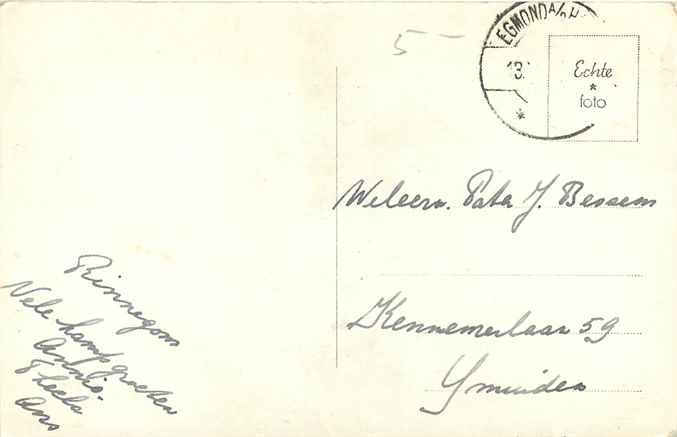 5 -
EGMOND A/D H
18
Echte
*
foto
Weleerw. Pater J. Bessem
Kennemerlaan 59
IJmuiden
Rinnegom
Vele kampgroeten
Annie.
Ans